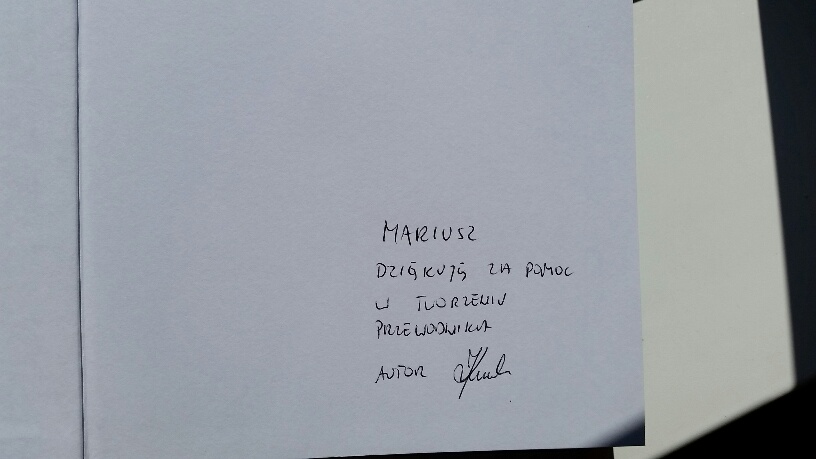 MARIUSZ
DZIĘKUJĘ ZA POMOC
W TWORZENIU
PRZEWODNIKA
AUTOR